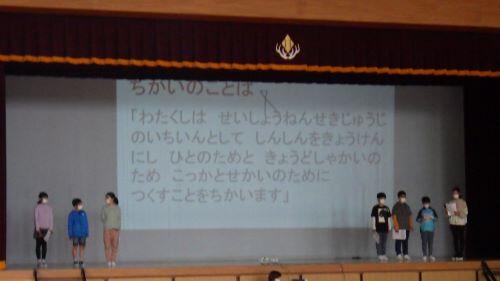 ちかいのことば
「わたくしは　せいしょうねんせきじゅうじ
のいちいんとして　しんしんをきょうけん
にし　ひとのためと　きょうどしゃかいの
ため　こっかとせかいのために
つくすことをちかいます」